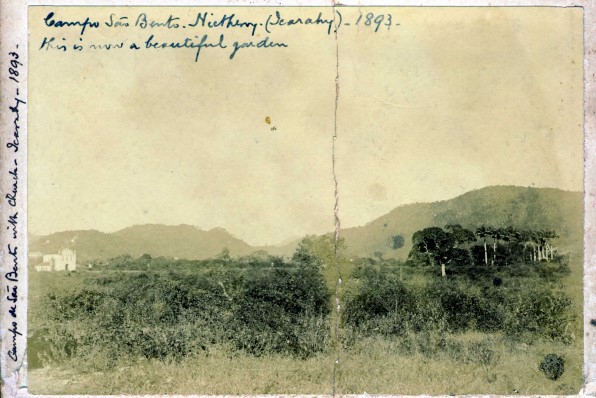 Campo São Bento. Nictheroy. (Icarahy) - 1893 -
this is now a beautiful garden
Campo de São Bento with church - Icarahy - 1893 -